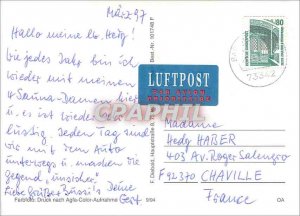 März 97
Hallo meine lb. Hedy!
wie jedes Jahr bin ich
wieder mit meinen
4 Sauna-Damen hier
u. es ist wieder
lustig. Jeden Tag sind
wir mit dem Auto
unterwegs u. machen die
Gegend „unsicher".
Liebe Grüße + Bussi's Deine
Gert
F. Dietzold, Hauptstraße
Best.-Nr. 101748 F
LUFTPOST
PAR AVION
PRIORITAIRE
80
DEUTSCHE BUNDESPOST
73342
Madame
Hedy HAßER
403 Av. Roger Salengro
F 92370 CHAVILLE
France
Farbfoto: Druck nach Agfa-Color-Aufnahme
9/94
OA
PHILACARTE